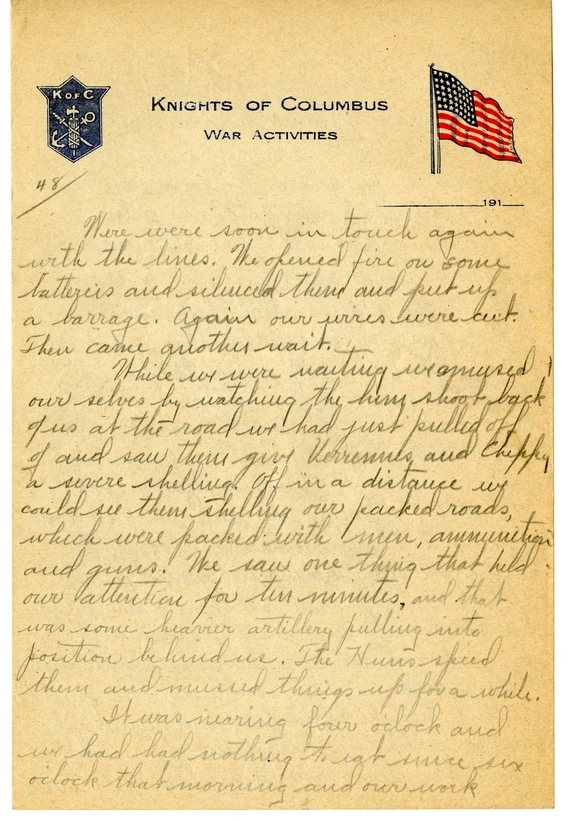 K of C
KNIGHTS OF COLUMBUS
WAR ACTIVITIES
48/
191
Were were soon in touch again
with the lines. We opened fire on some
batteries and silenced them and put up
a barrage. Again our wires were cut.
Then came another wait.
While we were waiting we amused
our selves by watching the huns shoot back
of us at the road we had just pulled off
of and saw them give Verrennes and Cheppy
a severe shelling. Off in a distance we
could see them shelling our packed roads,
which were packed with men, ammunition
and guns. We saw one thing that held
our attention for ten minutes, and that
was some heavier artillery pulling into
position behind us. The Huns spied
them and mussed things up for a while.
It was nearing four oclock and
we had had nothing to eat since six
oclock that morning and our work